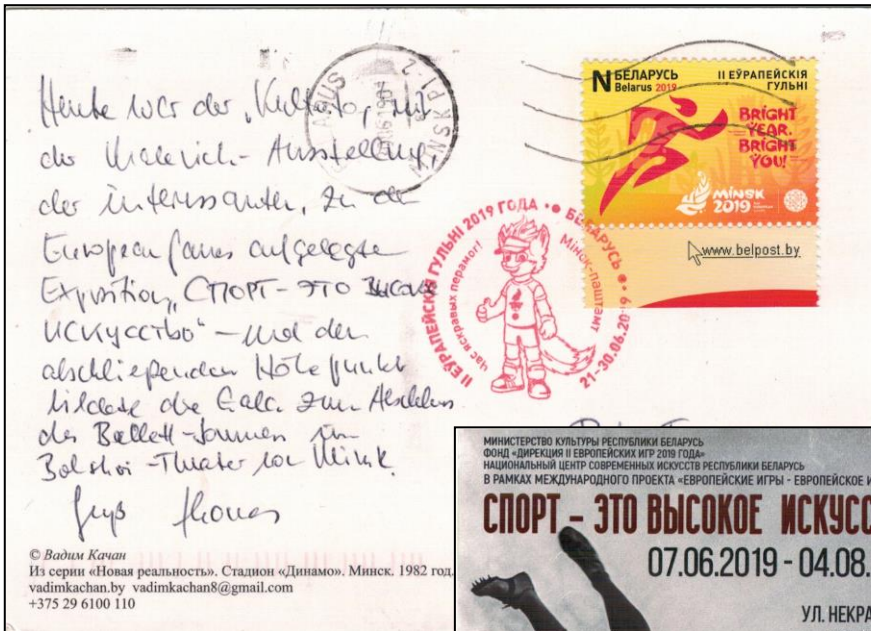 Heute war der "Kulturtag", mit
der Malewich-Ausstellung,
der interessanten, zu den
European Games aufgelegte
Exposition „СПОРТ - ЭТО ВЫСОКОЕ
ИСКУССТВО" - und den
abschließenden Höhepunkt
bildete die Gala zum Abschluss
des Ballett-Sommers im
Bolshoi-Theater von Minsk.
Gruß Thomas
© Вадим Качан
Из серии «Новая реальность». Стадион «Динамо». Минск. 1982 год.
vadimkachan.by vadimkachan8@gmail.com
+375 29 6100 110
MINSK PI-2
N БЕЛАРУСЬ
Belarus 2019
II ЕЎРАПЕЙСКІЯ
ГУЛЬНІ
BRIGHT
YEAR,
BRIGHT
YOU!
MINSK
2019
www.belpost.by
II ЕЎРАПЕЙСКІЯ ГУЛЬНІ 2019 ГОДА • БЕЛАРУСЬ •
час яскравых перамог!
Мінск-паштамт
21-30.06.2019
МИНИСТЕРСТВО КУЛЬТУРЫ РЕСПУБЛИКИ БЕЛАРУСЬ
ФОНД «ДИРЕКЦИЯ II ЕВРОПЕЙСКИХ ИГР 2019 ГОДА»
НАЦИОНАЛЬНЫЙ ЦЕНТР СОВРЕМЕННЫХ ИСКУССТВ РЕСПУБЛИКИ БЕЛАРУСЬ
В РАМКАХ МЕЖДУНАРОДНОГО ПРОЕКТА «ЕВРОПЕЙСКИЕ ИГРЫ - ЕВРОПЕЙСКОЕ И
СПОРТ - ЭТО ВЫСОКОЕ ИСКУСС
07.06.2019 - 04.08.
УЛ. НЕКРА